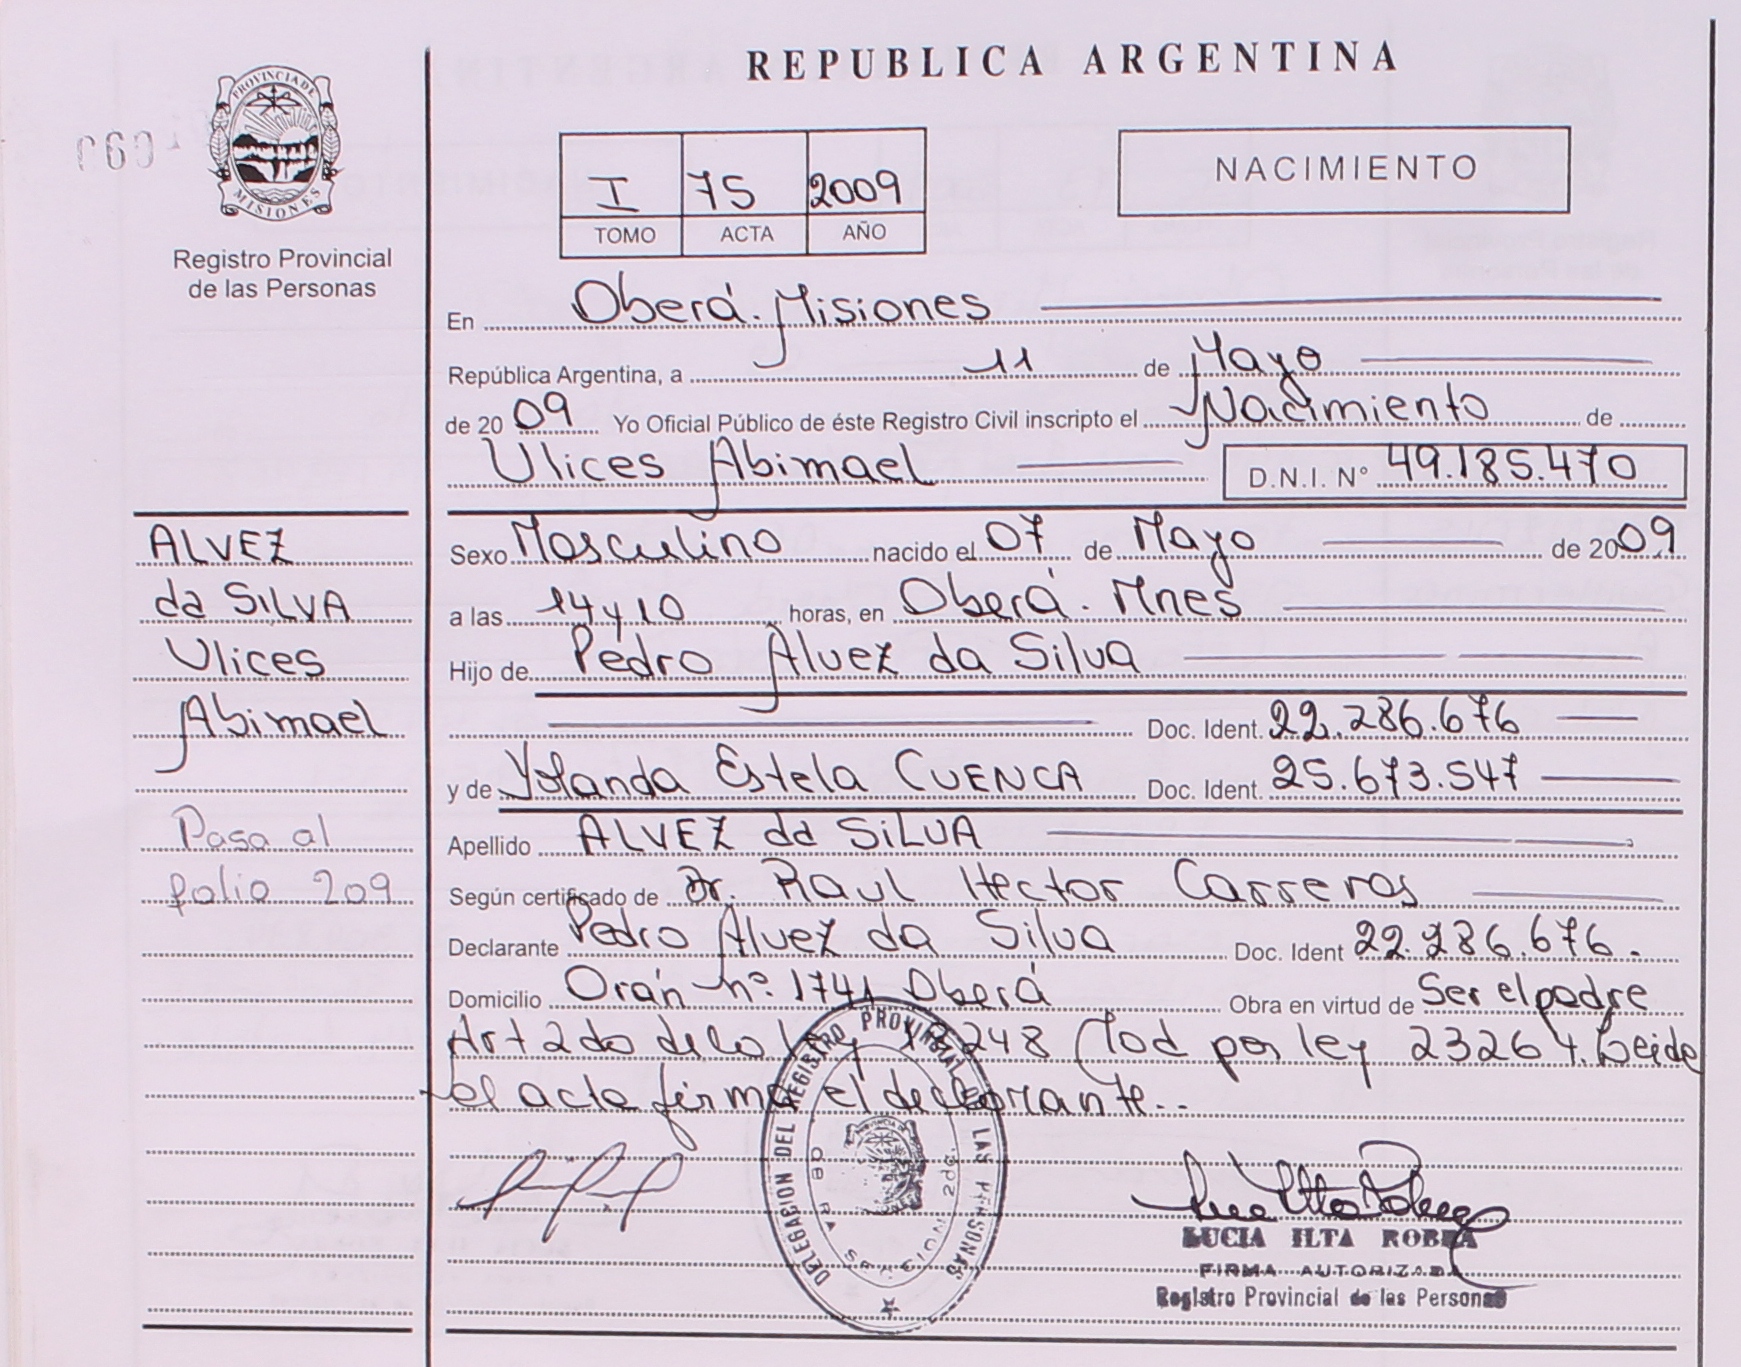 REPUBLICA ARGENTINA
PROVINCIA DE
MISIONES
Registro Provincial
de las Personas
NACIMIENTO
I 75 2009
TOMO ACTA AÑO
En Oberá. Misiones
República Argentina, a 11 de Mayo
de 2009 Yo Oficial Público de éste Registro Civil inscripto el Nacimiento de
Ulices Abimael D.N.I. Nº 49.185.470
ALVEZ
da SILVA
Ulices
Abimael
Pasa al
folio 209
Sexo Masculino nacido el 07 de Mayo de 2009
a las 14 y 10 horas, en Oberá. Mnes
Hijo de Pedro Alvez da Silva
Doc. Ident. 22.286.676
y de Yolanda Estela CUENCA Doc. Ident. 25.673.547
Apellido ALVEZ da SILVA
Según certificado de Dr. Raul Hector Carreros
Declarante Pedro Alvez da Silva Doc. Ident 22.286.676.
Domicilio Orán nº. 1741 Oberá Obra en virtud de Ser el padre
Art 2do de la ley 18248 Mod por ley 23264. Leida
el acta firma el declarante..
DELEGACION DEL REGISTRO PROVINCIAL DE LAS PERSONAS
OBERA SECCION 2da.
LUCIA ILTA ROBEA
FIRMA AUTORIZADA
Registro Provincial de las Personas